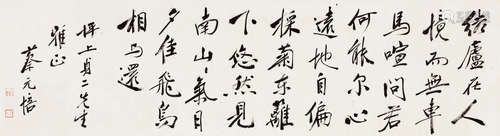 結廬在人
境而無車
馬喧問君
何能尔心
遠地自偏
採菊東籬
下悠然見
南山〻氣日
夕佳飛鳥
相与還
坪上貞二先生
雅正
蔡元培